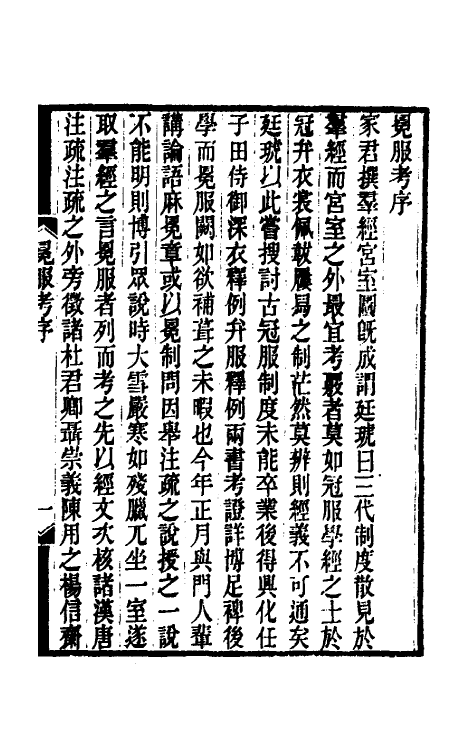 冕服考序
家君撰羣經宮室圖既成謂廷琥曰三代制度散見於
羣經而宮室之外最宜考覈者莫如冠服學經之士於
冠弁衣裳佩韍屨舄之制茫然莫辨則經義不可通矣
廷琥以此嘗搜討古冠服制度未能卒業後得興化任
子田侍御深衣釋例弁服釋例兩書考證詳博足裨後
學而冕服闕如欲補葺之未暇也今年正月與門人輩
講論語麻冕章或以冕制問因舉注疏之說授之一說
不能明則博引眾說時大雪嚴寒如殘臘兀坐一室遂
取羣經之言冕服者列而考之先以經文次核諸漢唐
注疏注疏之外旁徵諸杜君卿聶崇義陳用之楊信齋
冕服考序
一